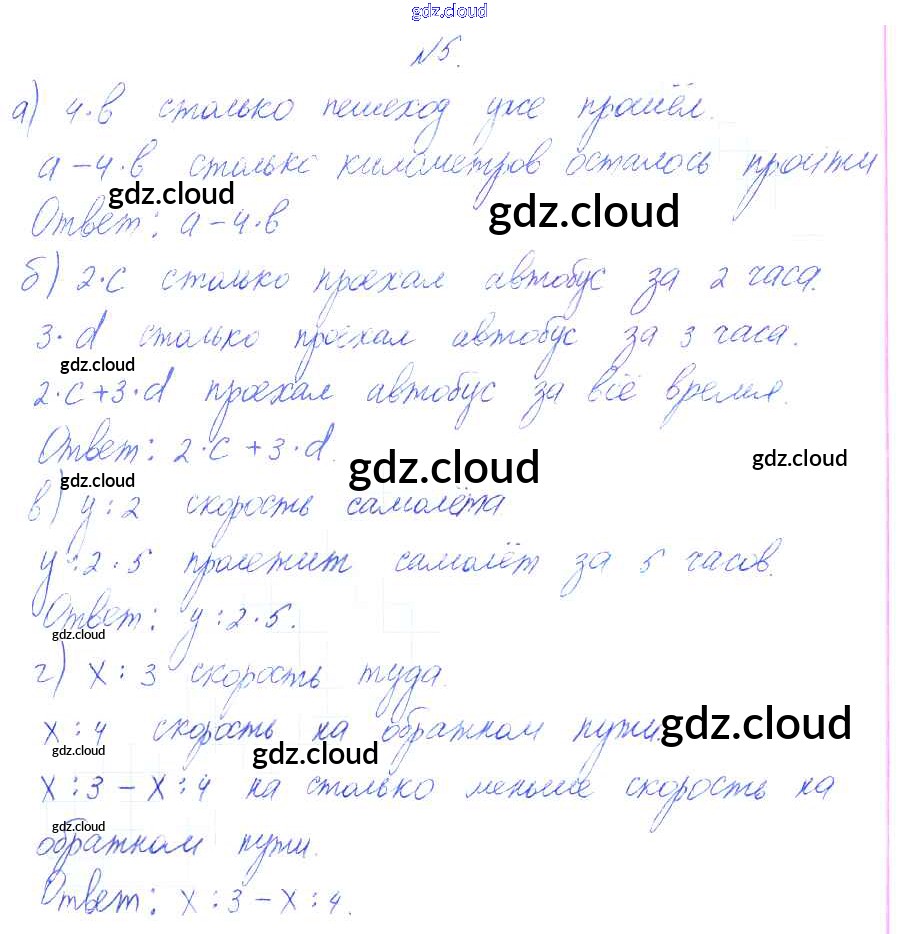 gdz.cloud
№5.
а) 4·в столько пешеход уже прошёл.
а-4·в столько километров осталось пройти
gdz.cloud
gdz.cloud
Ответ: а-4·в
б) 2·c столько проехал автобус за 2 часа.
3·d столько проехал автобус за 3 часа.
gdz.cloud
2·c+3·d проехал автобус за всё время.
Ответ: 2·c+3·d.
gdz.cloud
gdz.cloud
gdz.cloud
в) y:2 скорость самолёта
y:2·5 пролетит самолёт за 5 часов.
Ответ: y:2·5.
gdz.cloud
г) x:3 скорость туда.
x:4 скорость на обратном пути.
gdz.cloud
gdz.cloud
gdz.cloud
x:3-x:4 на столько меньше скорость на
gdz.cloud
обратном пути.
Ответ: x:3-x:4.